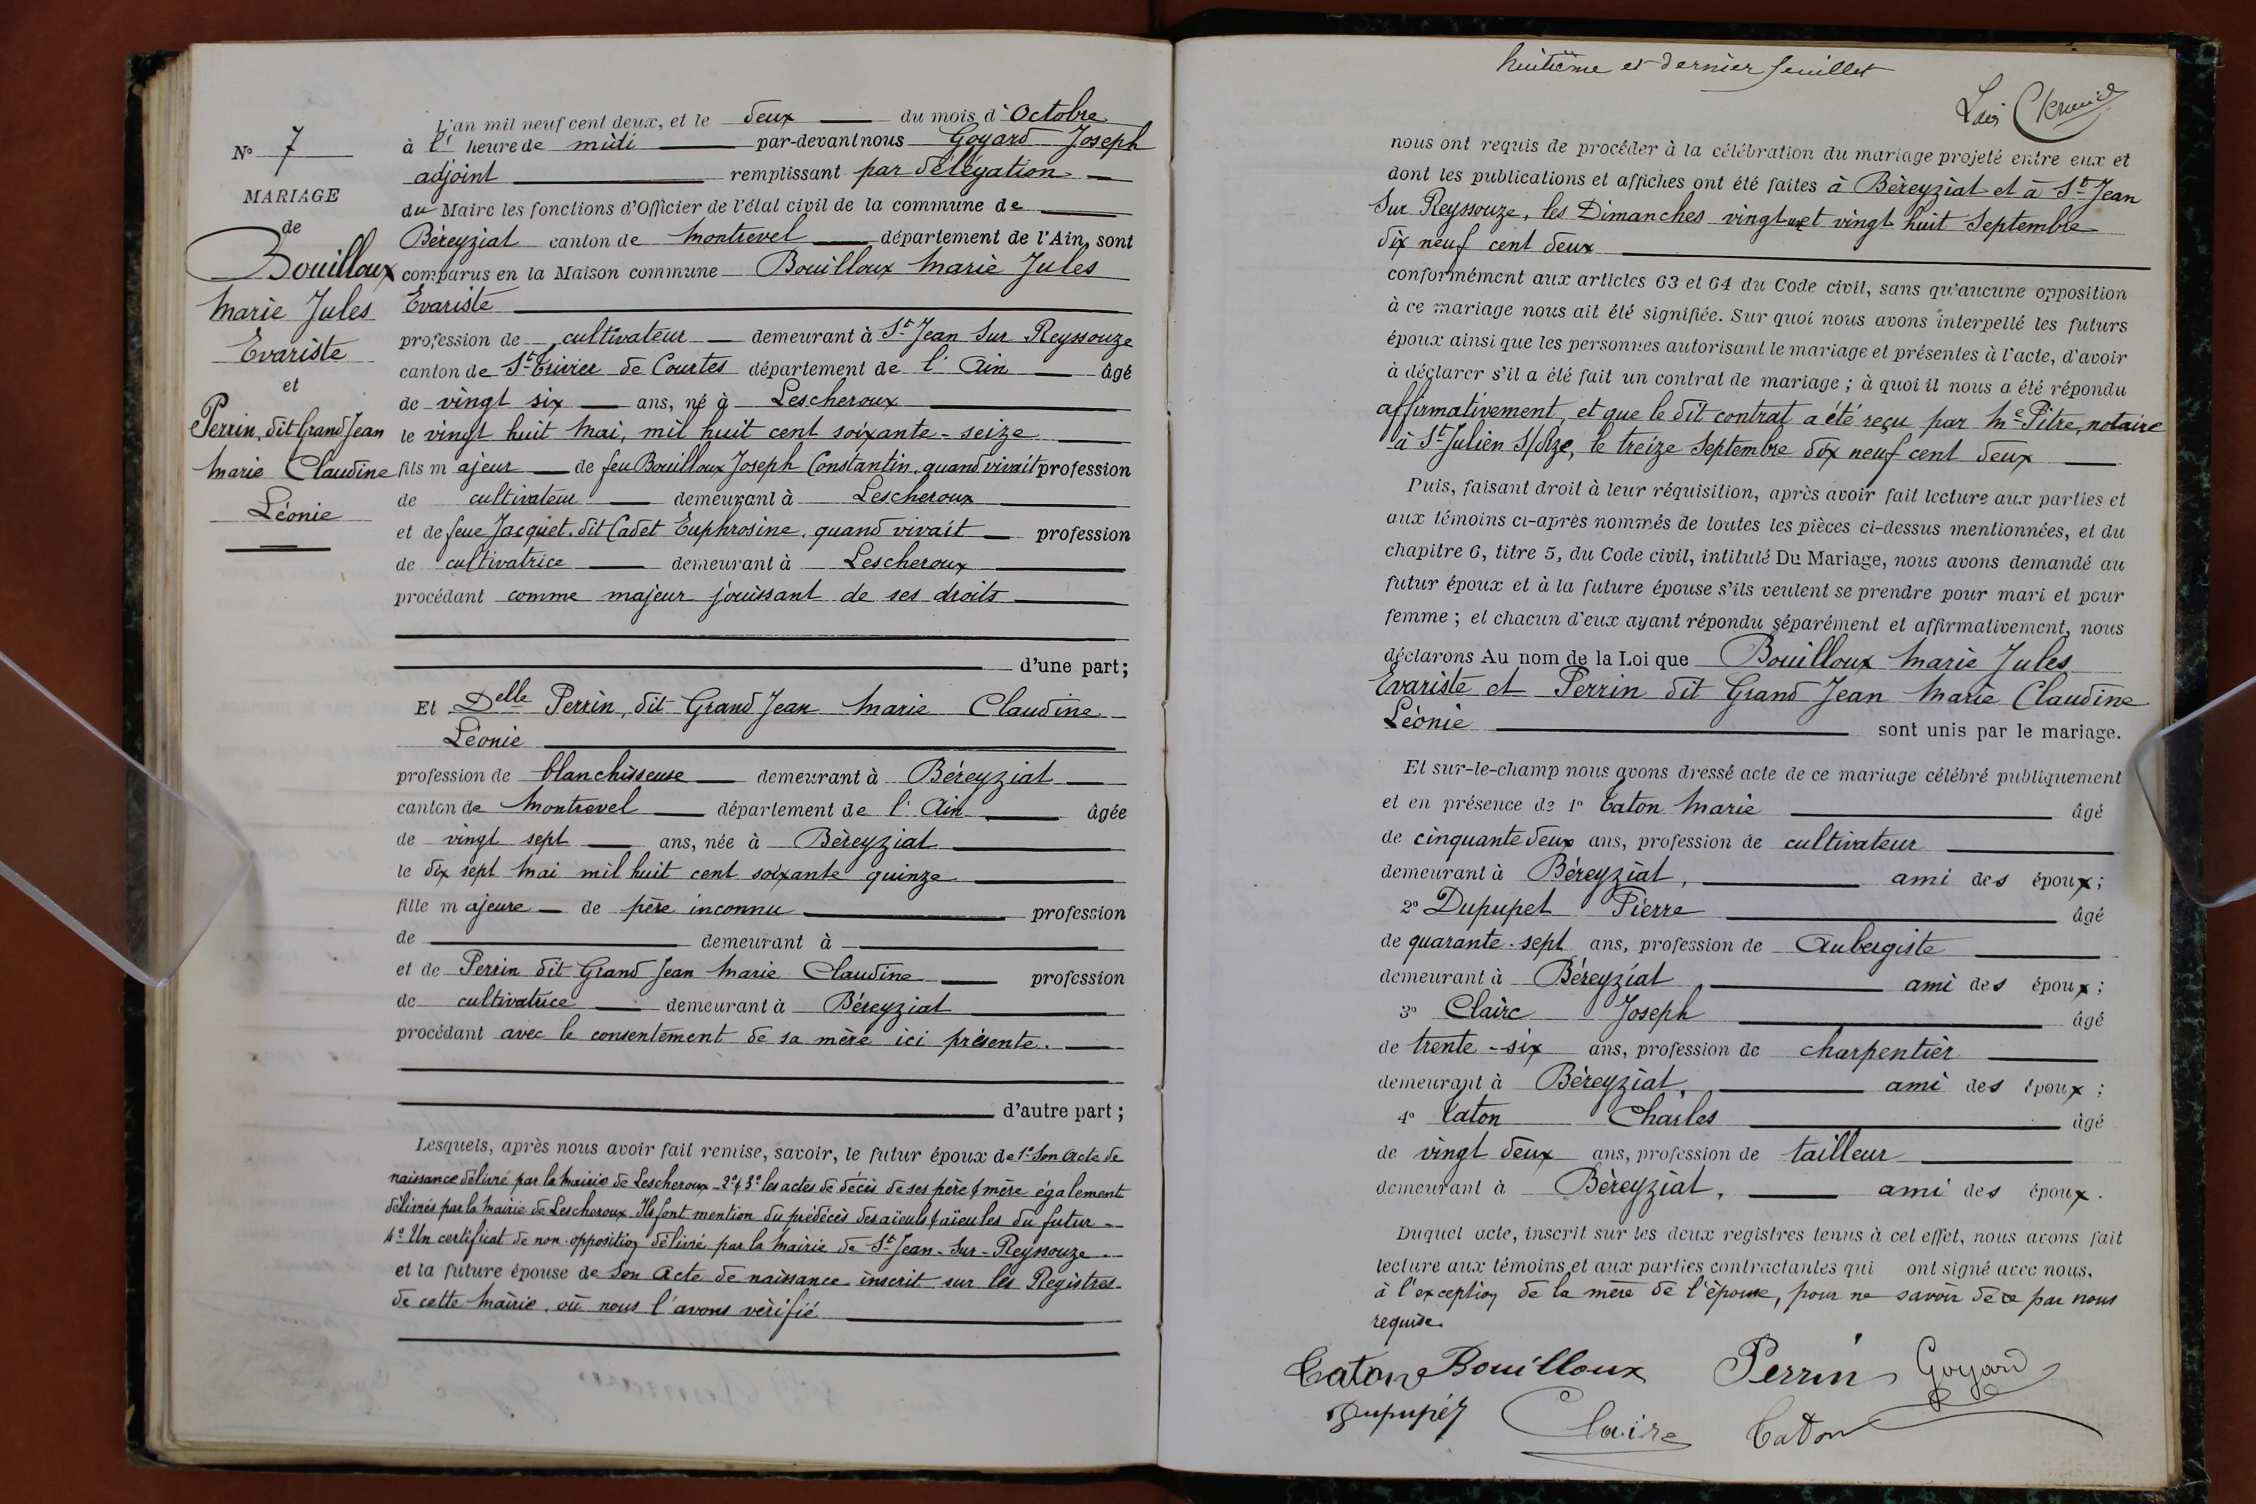 N° 7
MARIAGE
de
Bouilloux
Marie Jules
Evariste
et
Perrin, dit Grand Jean
Marie Claudine
Léonie
L'an mil neuf cent deux, et le deux du mois d'Octobre
à l'heure de midi par-devant nous Goyard Joseph
adjoint remplissant par délégation
du Maire les fonctions d'Officier de l'état civil de la commune de
Béreyziat canton de Montrevel département de l'Ain, sont
comparus en la Maison commune Bouilloux Marie Jules
Evariste
profession de cultivateur demeurant à St Jean sur Reyssouze
canton de St Trivier de Courtes département de l'Ain âgé
de vingt six ans, né à Lescheroux
le vingt huit Mai, mil huit cent soixante-seize
fils majeur de feu Bouilloux Joseph Constantin, quand vivait profession
de cultivateur demeurant à Lescheroux
et de feue Jacquet, dit Cadet Euphrosine, quand vivait profession
de cultivatrice demeurant à Lescheroux
procédant comme majeur jouissant de ses droits
d'une part;
Et Delle Perrin, dit Grand Jean Marie Claudine
Léonie
profession de blanchisseuse demeurant à Béreyziat
canton de Montrevel département de l'Ain âgée
de vingt sept ans, née à Béreyziat
le dix sept Mai mil huit cent soixante quinze
fille majeure de père inconnu profession
de demeurant à
et de Perrin dit Grand Jean Marie Claudine profession
de cultivatrice demeurant à Béreyziat
procédant avec le consentement de sa mère ici présente.
d'autre part;
Lesquels, après nous avoir fait remise, savoir, le futur époux de 1° Son Acte de
naissance délivré par la Mairie de Lescheroux - 2° & 3° les actes de décès de ses père & mère également
délivrés par la Mairie de Lescheroux. Ils font mention du prédécès des aïeuls & aïeules du futur -
4° Un certificat de non-opposition délivré par la Mairie de St Jean-sur-Reyssouze
et la future épouse de Son Acte de naissance inscrit sur les Registres
de cette Mairie, où nous l'avons vérifié
huitième et dernier feuillet
nous ont requis de procéder à la célébration du mariage projeté entre eux et
dont les publications et affiches ont été faites à Béreyziat et à St Jean
sur Reyssouze, les Dimanches vingt un et vingt huit Septembre
dix neuf cent deux
conformément aux articles 63 et 64 du Code civil, sans qu'aucune opposition
à ce mariage nous ait été signifiée. Sur quoi nous avons interpellé les futurs
époux ainsi que les personnes autorisant le mariage et présentes à l'acte, d'avoir
à déclarer s'il a été fait un contrat de mariage; à quoi il nous a été répondu
affirmativement, et que le dit contrat a été reçu par Me Pitre, notaire
à St Julien s/Rze, le treize Septembre dix neuf cent deux
Puis, faisant droit à leur réquisition, après avoir fait lecture aux parties et
aux témoins ci-après nommés de toutes les pièces ci-dessus mentionnées, et du
chapitre 6, titre 5, du Code civil, intitulé Du Mariage, nous avons demandé au
futur époux et à la future épouse s'ils veulent se prendre pour mari et pour
femme; et chacun d'eux ayant répondu séparément et affirmativement, nous
déclarons Au nom de la Loi que Bouilloux Marie Jules
Evariste et Perrin dit Grand Jean Marie Claudine
Léonie sont unis par le mariage.
Et sur-le-champ nous avons dressé acte de ce mariage célébré publiquement
et en présence de 1° Caton Marie âgé
de cinquante deux ans, profession de cultivateur
demeurant à Béreyziat, ami des époux;
2° Dupupet Pierre âgé
de quarante-sept ans, profession de Aubergiste
demeurant à Béreyziat, ami des époux;
3° Claire Joseph âgé
de trente-six ans, profession de charpentier
demeurant à Béreyziat, ami des époux;
4° Caton Charles âgé
de vingt deux ans, profession de tailleur
demeurant à Béreyziat, ami des époux.
Duquel acte, inscrit sur les deux registres tenus à cet effet, nous avons fait
lecture aux témoins et aux parties contractantes qui ont signé avec nous.
à l'exception de la mère de l'épouse, pour ne savoir de ce par nous
requise.
Caton Bouilloux Perrin Goyard
Dupupet Claire Caton